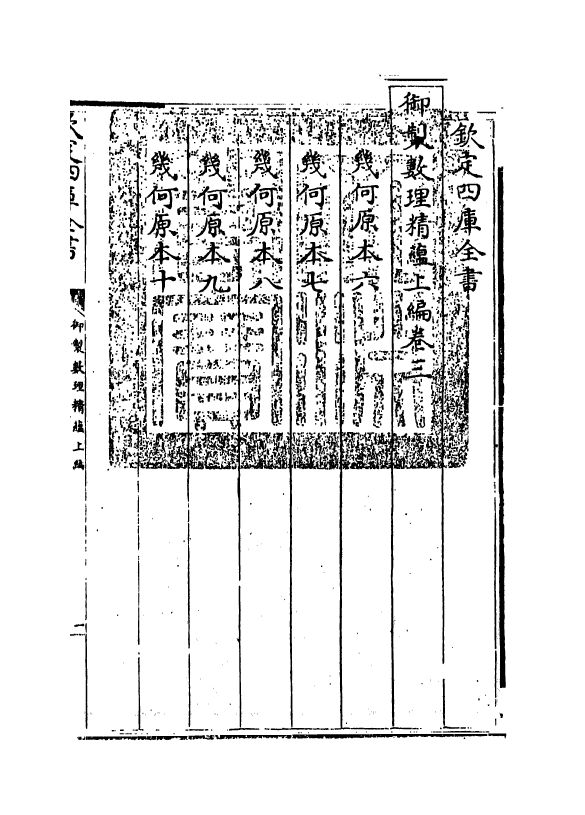 欽定四庫全書
御製數理精蘊上編卷三
幾何原本六
幾何原本七
幾何原本八
幾何原本九
幾何原本十
欽定四庫全書
御製數理精蘊上編
二